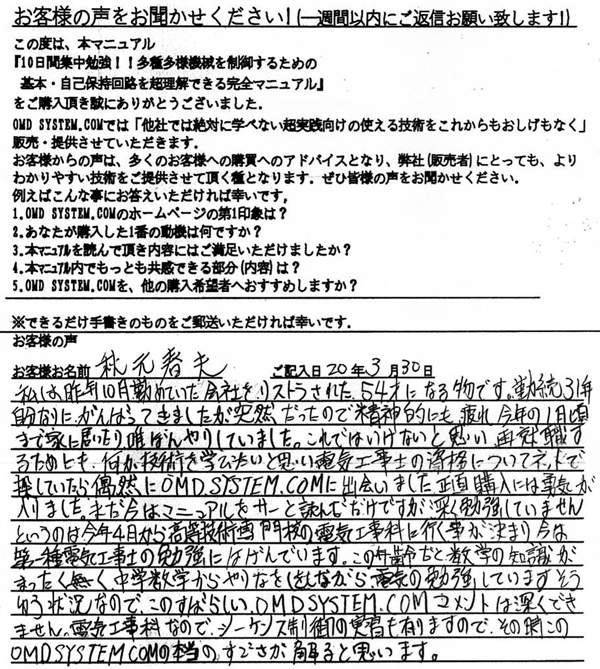 お客様の声をお聞かせください！(一週間以内にご返信お願い致します！)
この度は、本マニュアル
『10日間集中勉強！！多種多様機械を制御するための
基本・自己保持回路を超理解できる完全マニュアル』
をご購入頂き誠にありがとうございました。
OMD SYSTEM.COMでは「他社では絶対に学べない超実践向けの使える技術をこれからもおしげもなく」
販売・提供させていただきます。
お客様からの声は、多くのお客様への購買へのアドバイスとなり、弊社(販売者)にとっても、より
わかりやすい技術をご提供させて頂く種となります。ぜひ皆様の声をお聞かせください。
例えばこんな事にお答えいただければ幸いです。
1.OMD SYSTEM.COMのホームページの第1印象は？
2.あなたが購入した1番の動機は何ですか？
3.本マニュアルを読んで頂き内容にはご満足いただけましたか？
4.本マニュアル内でもっとも共感できる部分(内容)は？
5.OMD SYSTEM.COMを、他の購入希望者へおすすめしますか？
※できるだけ手書きのものをご郵送いただければ幸いです。
お客様の声
お客様お名前 秋元春夫 ご記入日20年3月30日
私は昨年10月勤めていた会社をリストラされた54才になる物です。勤続31年
自分なりにがんばってきましたが突然だったので精神的にも疲れ今年の1月頃
まで家に居たり唯ぼんやりしていました。これではいけないと思い、再就職す
るためにも、何か技術を学びたいと思い電気工事士の資格についてネットで
探していたら偶然にOMD.SYSTEM.COMに出会いました正直購入には勇気が
入りました。まだ今はマニュアルをサーと読んだだけですが深く勉強していません
というのは今年4月から高等技術専門校の電気工事科に行く事が決まり今は
第一種電気工事士の勉強にはげんでいます。この年齢だと数学の知識が
まったく無く中学数学からやりなをしをしながら電気の勉強しています そう
ゆう状況なので、このすばらしい、OMDSYSTEM.COMコメントは深くでき
ません。電気工事科なので、シーケンス制御の実習も有りますので、その時この
OMDSYSTEMCOMの本当のすごさが解ると思います。